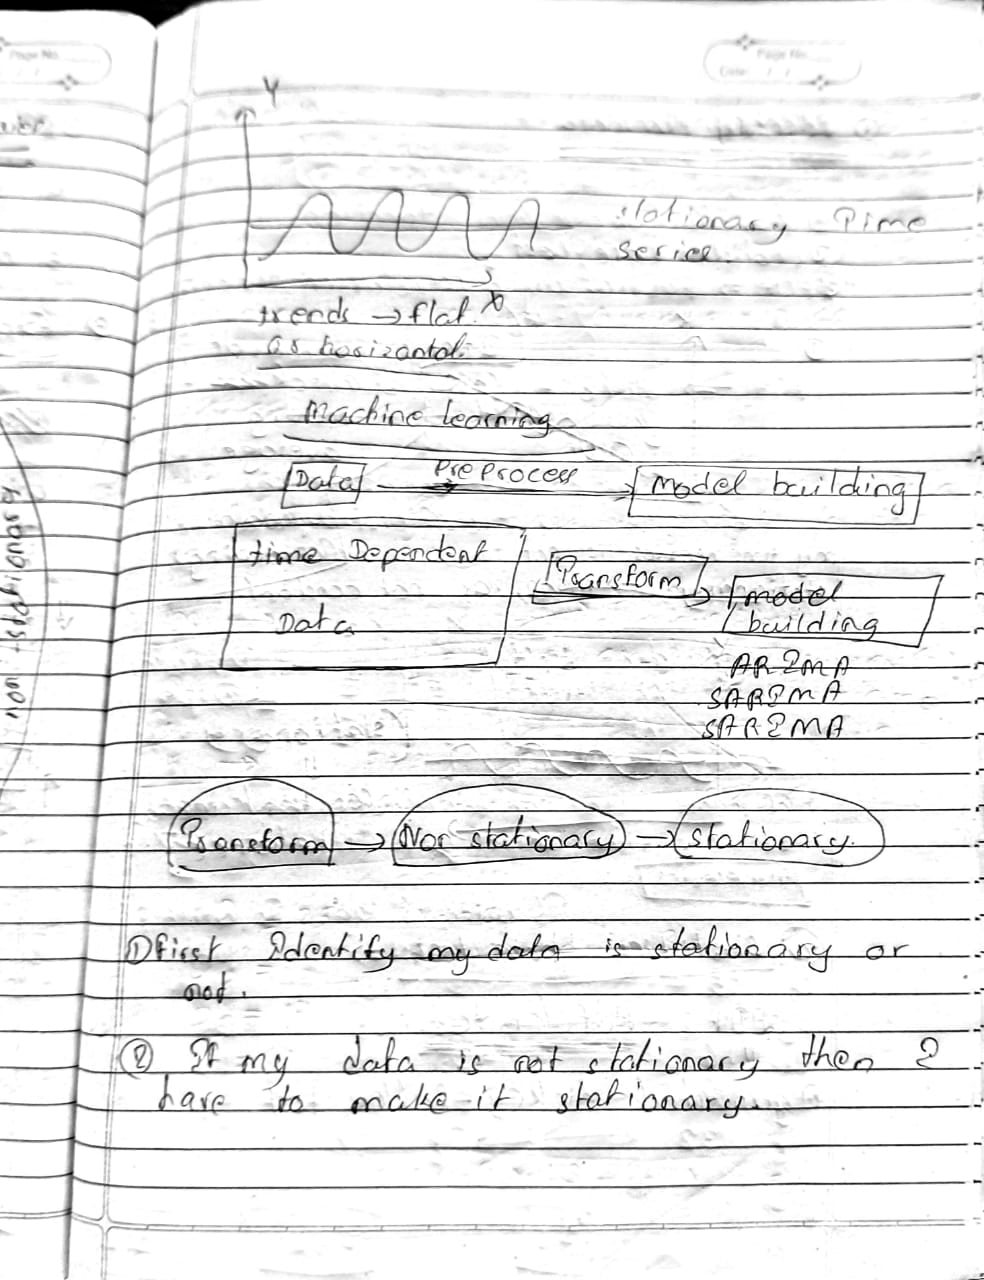 Page No.
Page No.
Date: / /
Y
stationary Time
series.
X
trends → flat
as horizantal.
Machine learning
Data → Preprocess → Model building
time Dependent
Data
Transform → model
building
ARIMA
SARIMA
SARIMA
Transform → Non stationary → stationary.
① first Identify my data is stationary or
not.
② If my data is not stationary then I
have to make it stationary.
non-stationary